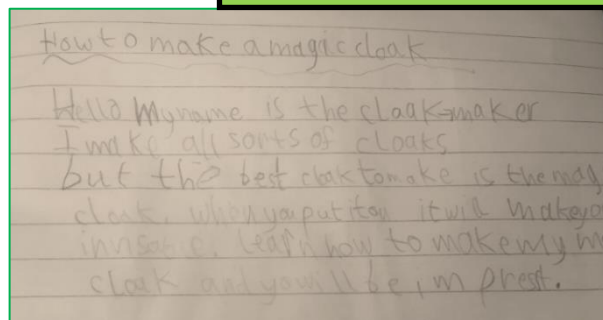 How to make a magic cloak
Hello My name is the cloak maker
I make all sorts of cloaks
but the best cloak to make is the mag
cloak. when you put it on it will make yo
invisable. learn how to make my m
cloak and you will be imprest.